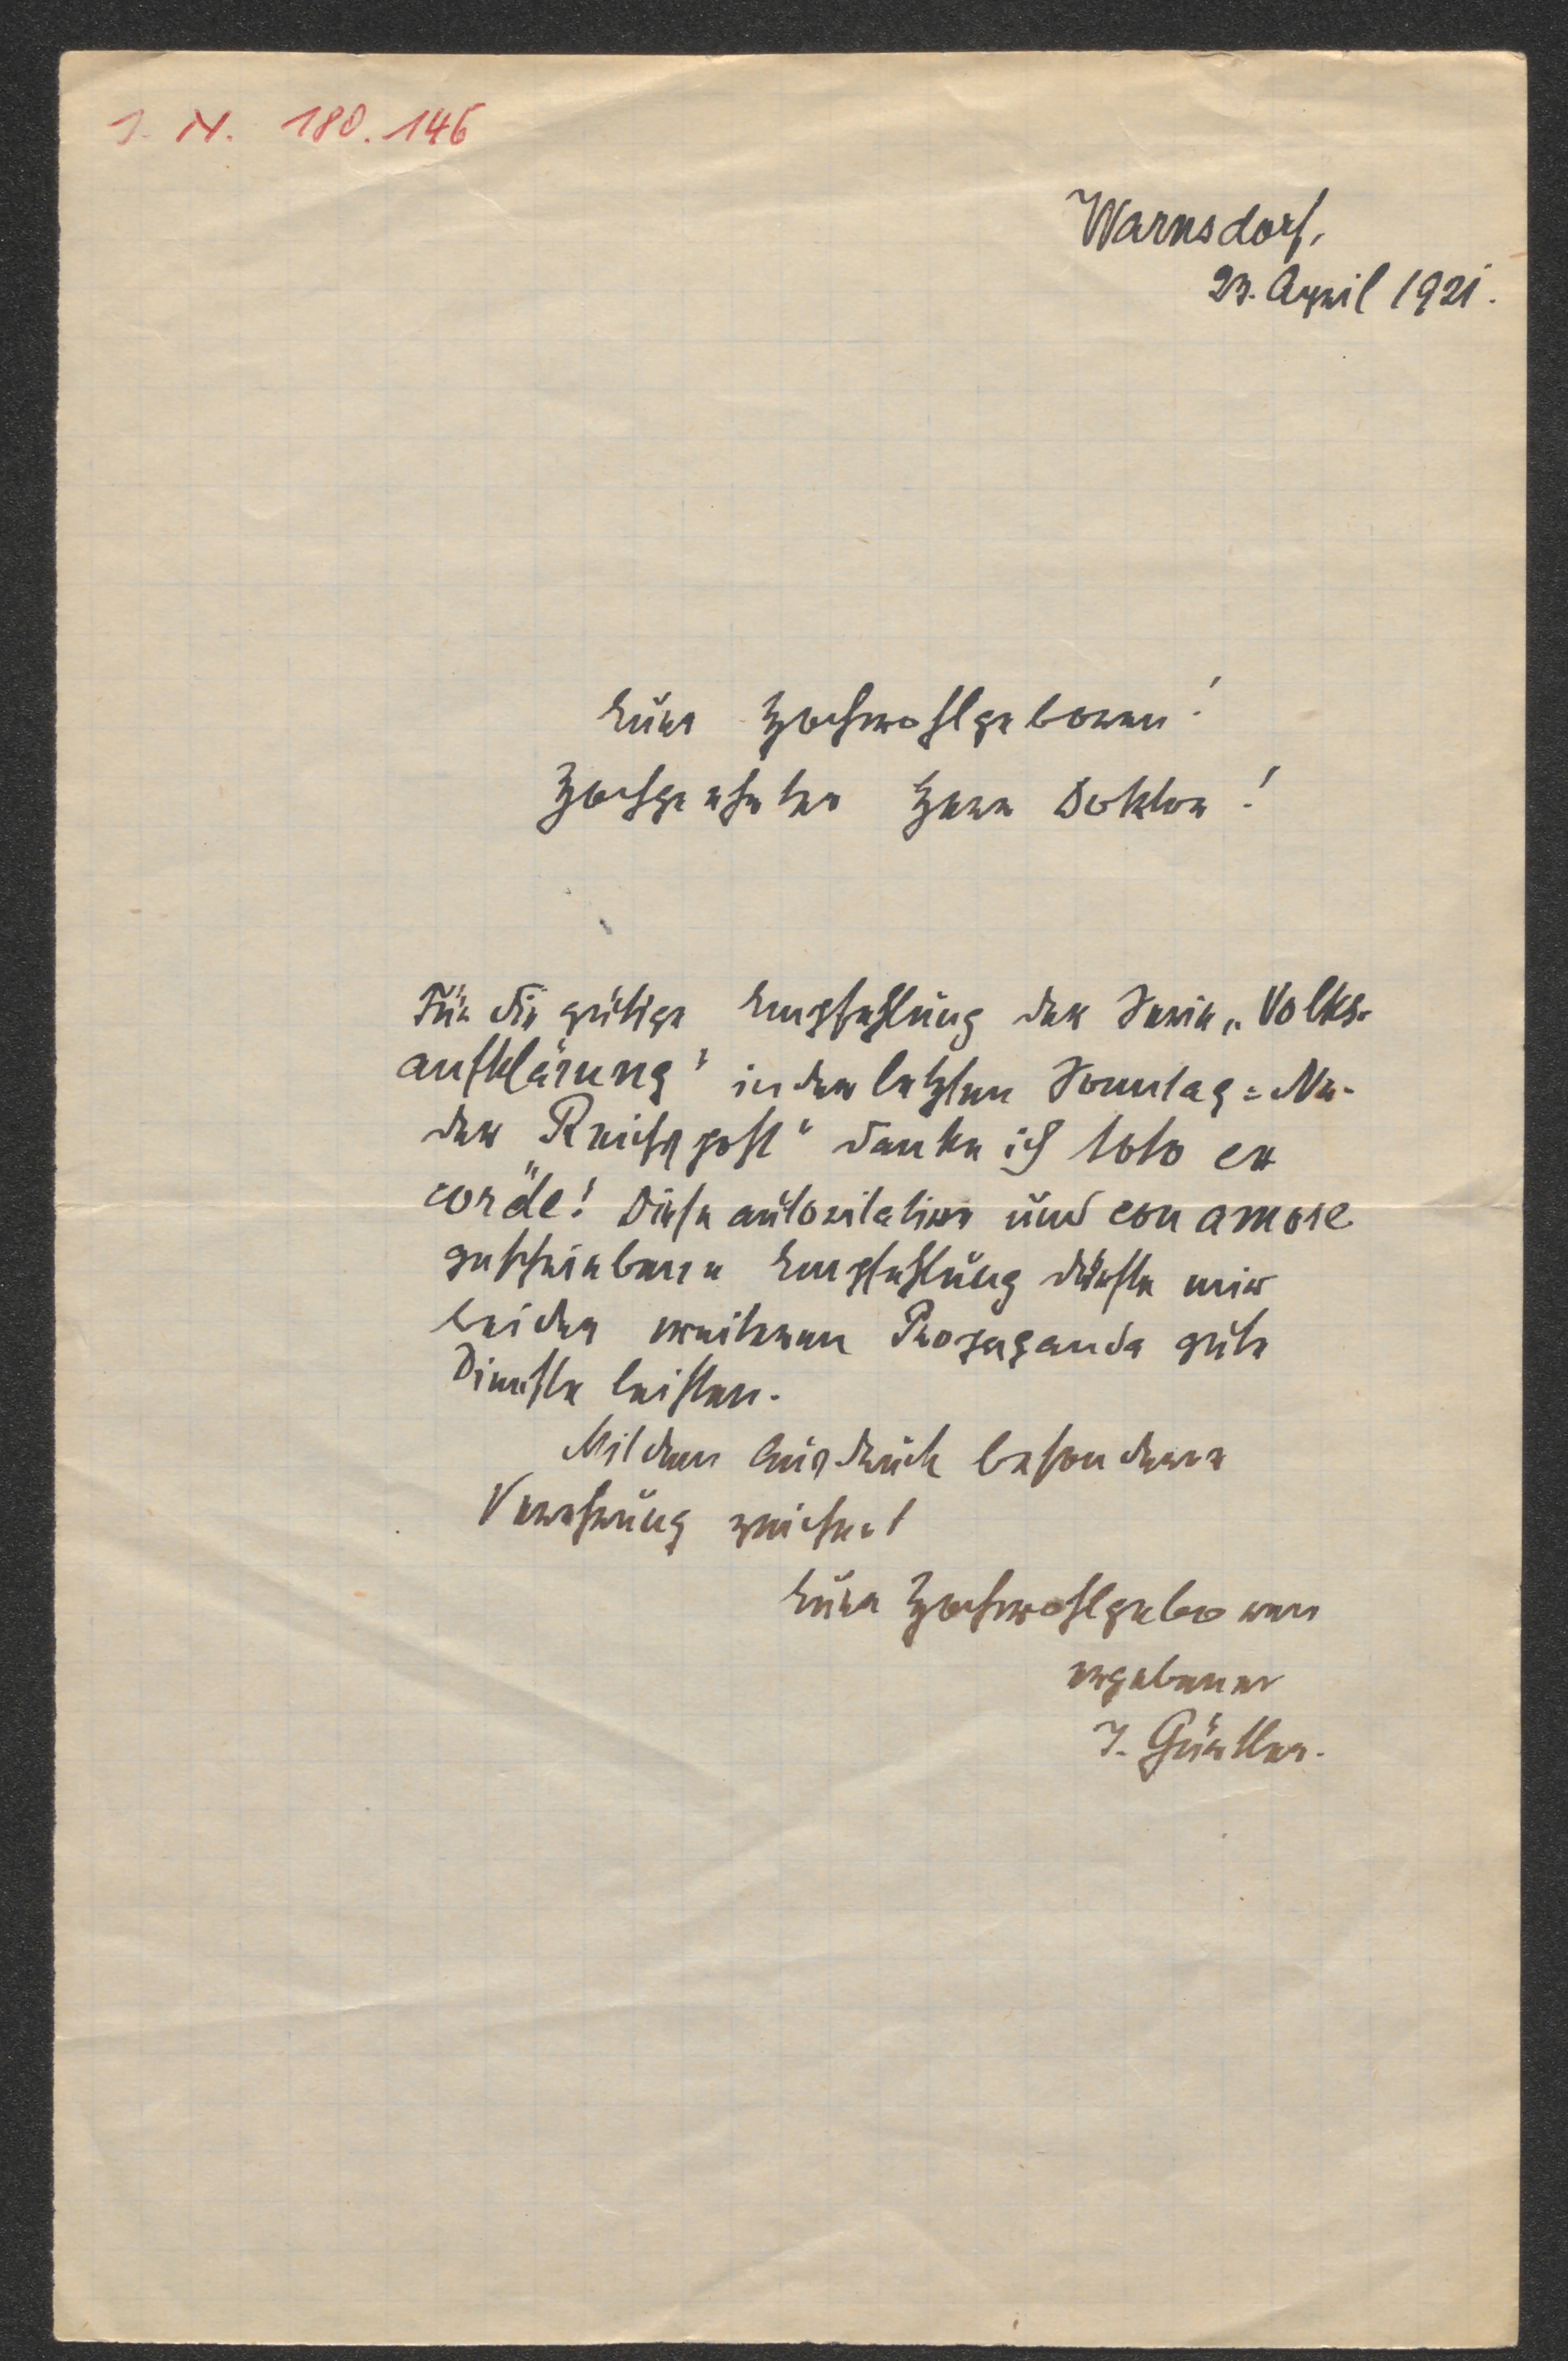 I. N. 180.146
Warnsdorf,
23. April 1921.
Euer Hochwohlgeboren!
Hochgeehrter Herr Doktor!
Für die gütige Empfehlung der Serie „Volks-
aufklärung" in der letzten Sonntag=Nr.
der "Reichspost" danke ich toto ex
corde! Diese autoritative und con amore
geschriebene Empfehlung dürfte mir
bei der weiteren Propaganda gute
Dienste leisten.
Mit dem Ausdruck besonderer
Verehrung zeichnet
Euer Hochwohlgeboren
ergebener
J. Gürtler.